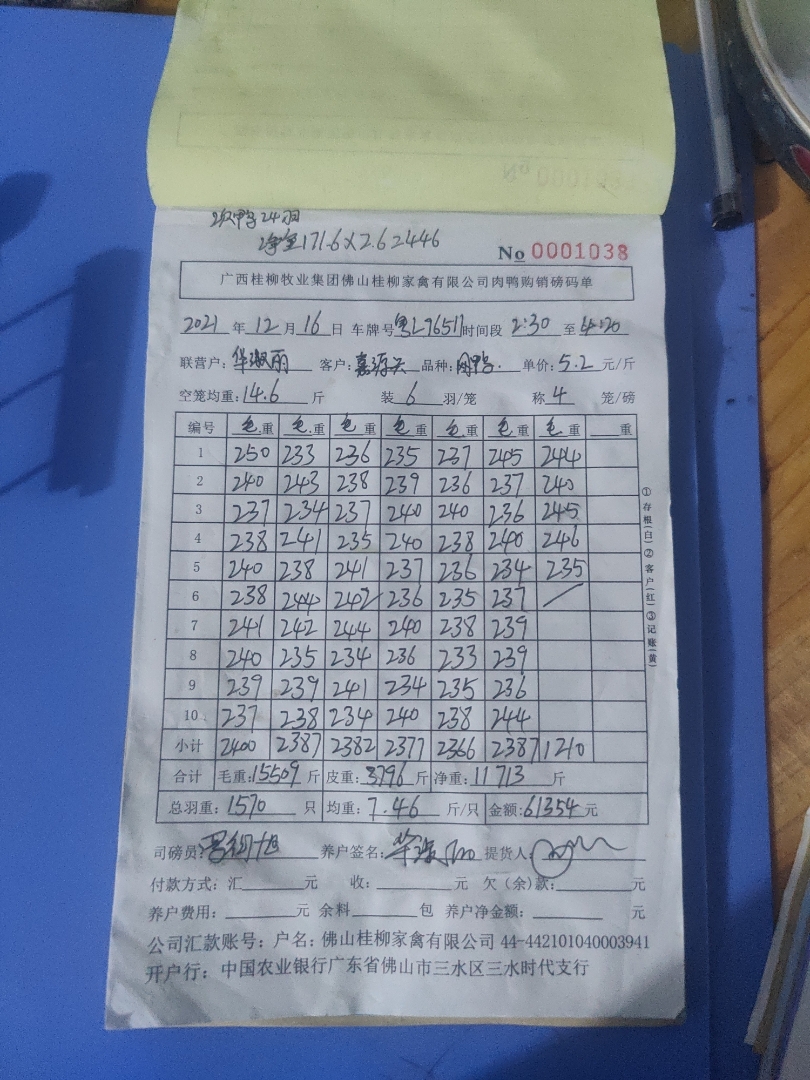 次鸭24羽
净重171.6×2.6 2446
No 0001038
广西桂柳牧业集团佛山桂柳家禽有限公司肉鸭购销磅码单
2021年12月16日 车牌号粤L76517时间段2:30至4:20
联营户:华淑丽 客户:嘉源天 品种:肉鸭. 单价:5.2元/斤
空笼均重:14.6斤 装6羽/笼 称4笼/磅
编号 毛重 毛重 毛重 毛重 毛重 毛重 毛重 重
1 250 233 236 235 237 245 244
2 240 243 238 239 236 237 240
3 237 234 237 240 240 236 245
4 238 241 235 240 238 240 246
5 240 238 241 237 236 234 235
6 238 244 242 236 235 237 /
7 241 242 244 240 238 239
8 240 235 234 236 233 239
9 239 239 241 234 235 236
10 237 238 234 240 238 244
小计 2400 2387 2382 2377 2366 2387 1210
合计 毛重:15509斤 皮重:3796斤 净重:11713斤
总羽重:1570只 均重:7.46斤/只 金额:61354元
①存根(白)②客户(红)③记账(黄)
司磅员: 养户签名: 提货人:
付款方式:汇元 收:元 欠(余)款:元
养户费用:元 余料包 养户净金额:元
公司汇款账号:户名:佛山桂柳家禽有限公司 44-442101040003941
开户行:中国农业银行广东省佛山市三水区三水时代支行